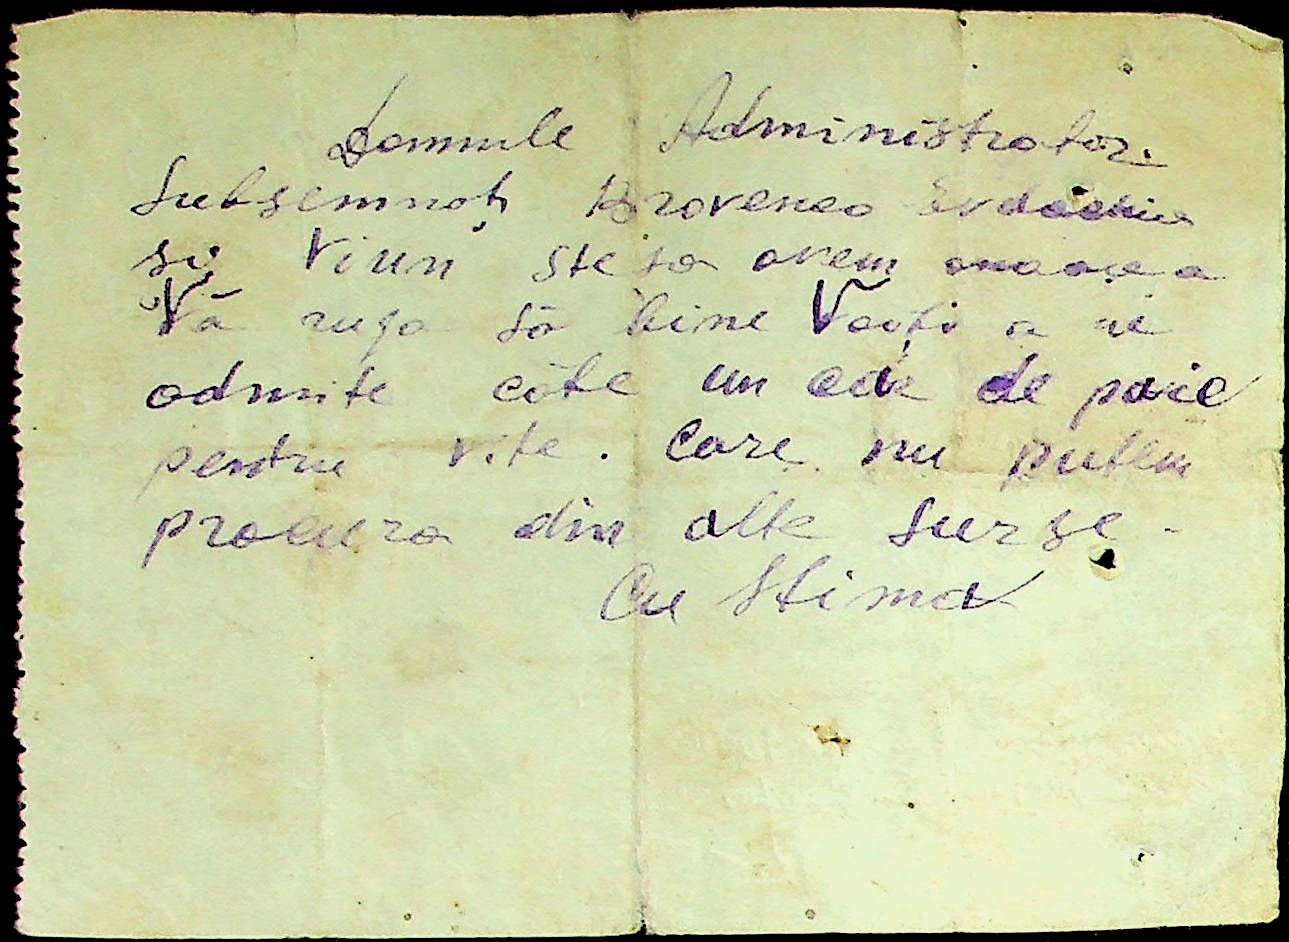 Domnule Administrator.
Subsemnați Brovenco Evdochia
și Viun Stesa avem onoarea
Vă ruga să bine Voiți a ne
admite câte un car de paie
pentru vite. Care nu putem
procura din alte surse -
Cu stima